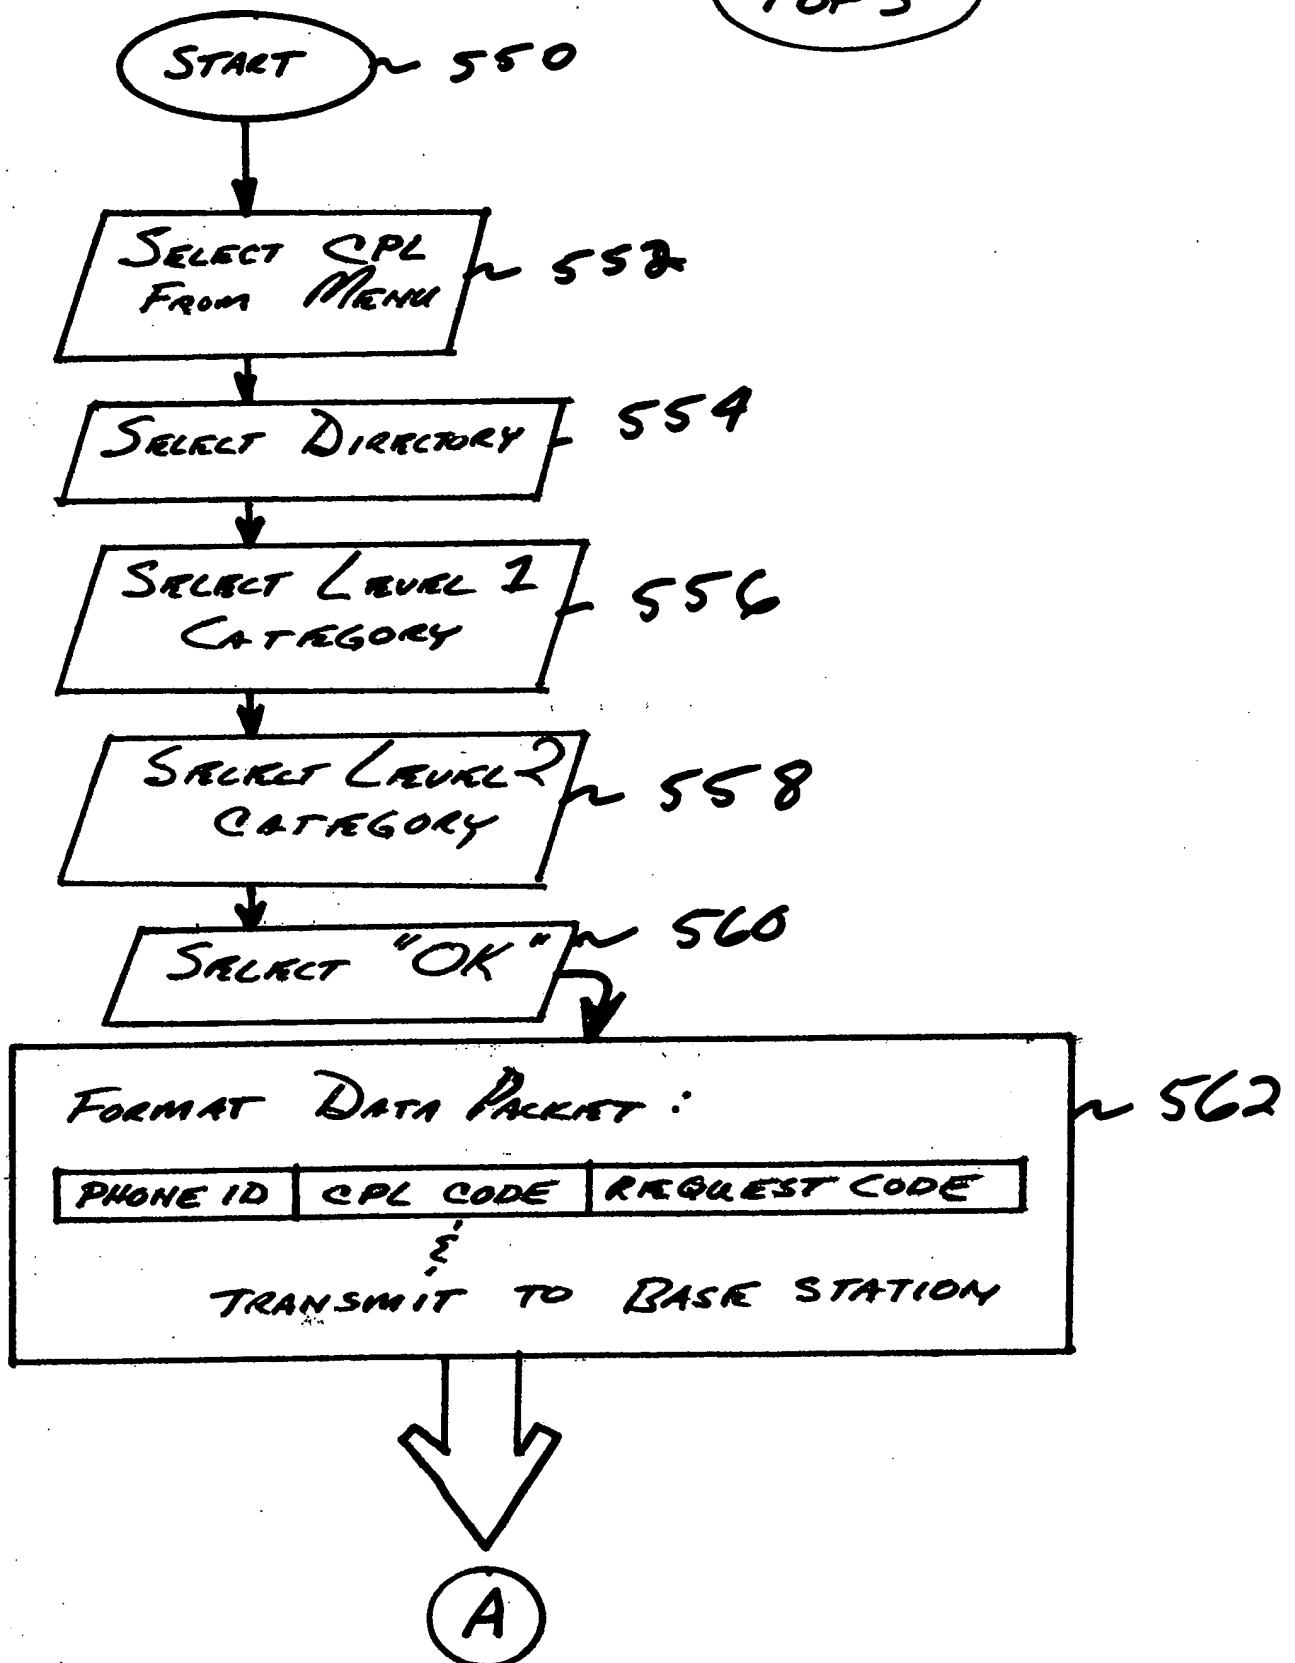 1 OF 5
START 550
SELECT CPL
FROM MENU
552
SELECT DIRECTORY 554
SELECT LEVEL 1
CATEGORY
556
SELECT LEVEL 2
CATEGORY
558
SELECT "OK" 560
FORMAT DATA PACKET :
562
PHONE ID CPL CODE REQUEST CODE
&
TRANSMIT TO BASE STATION
A